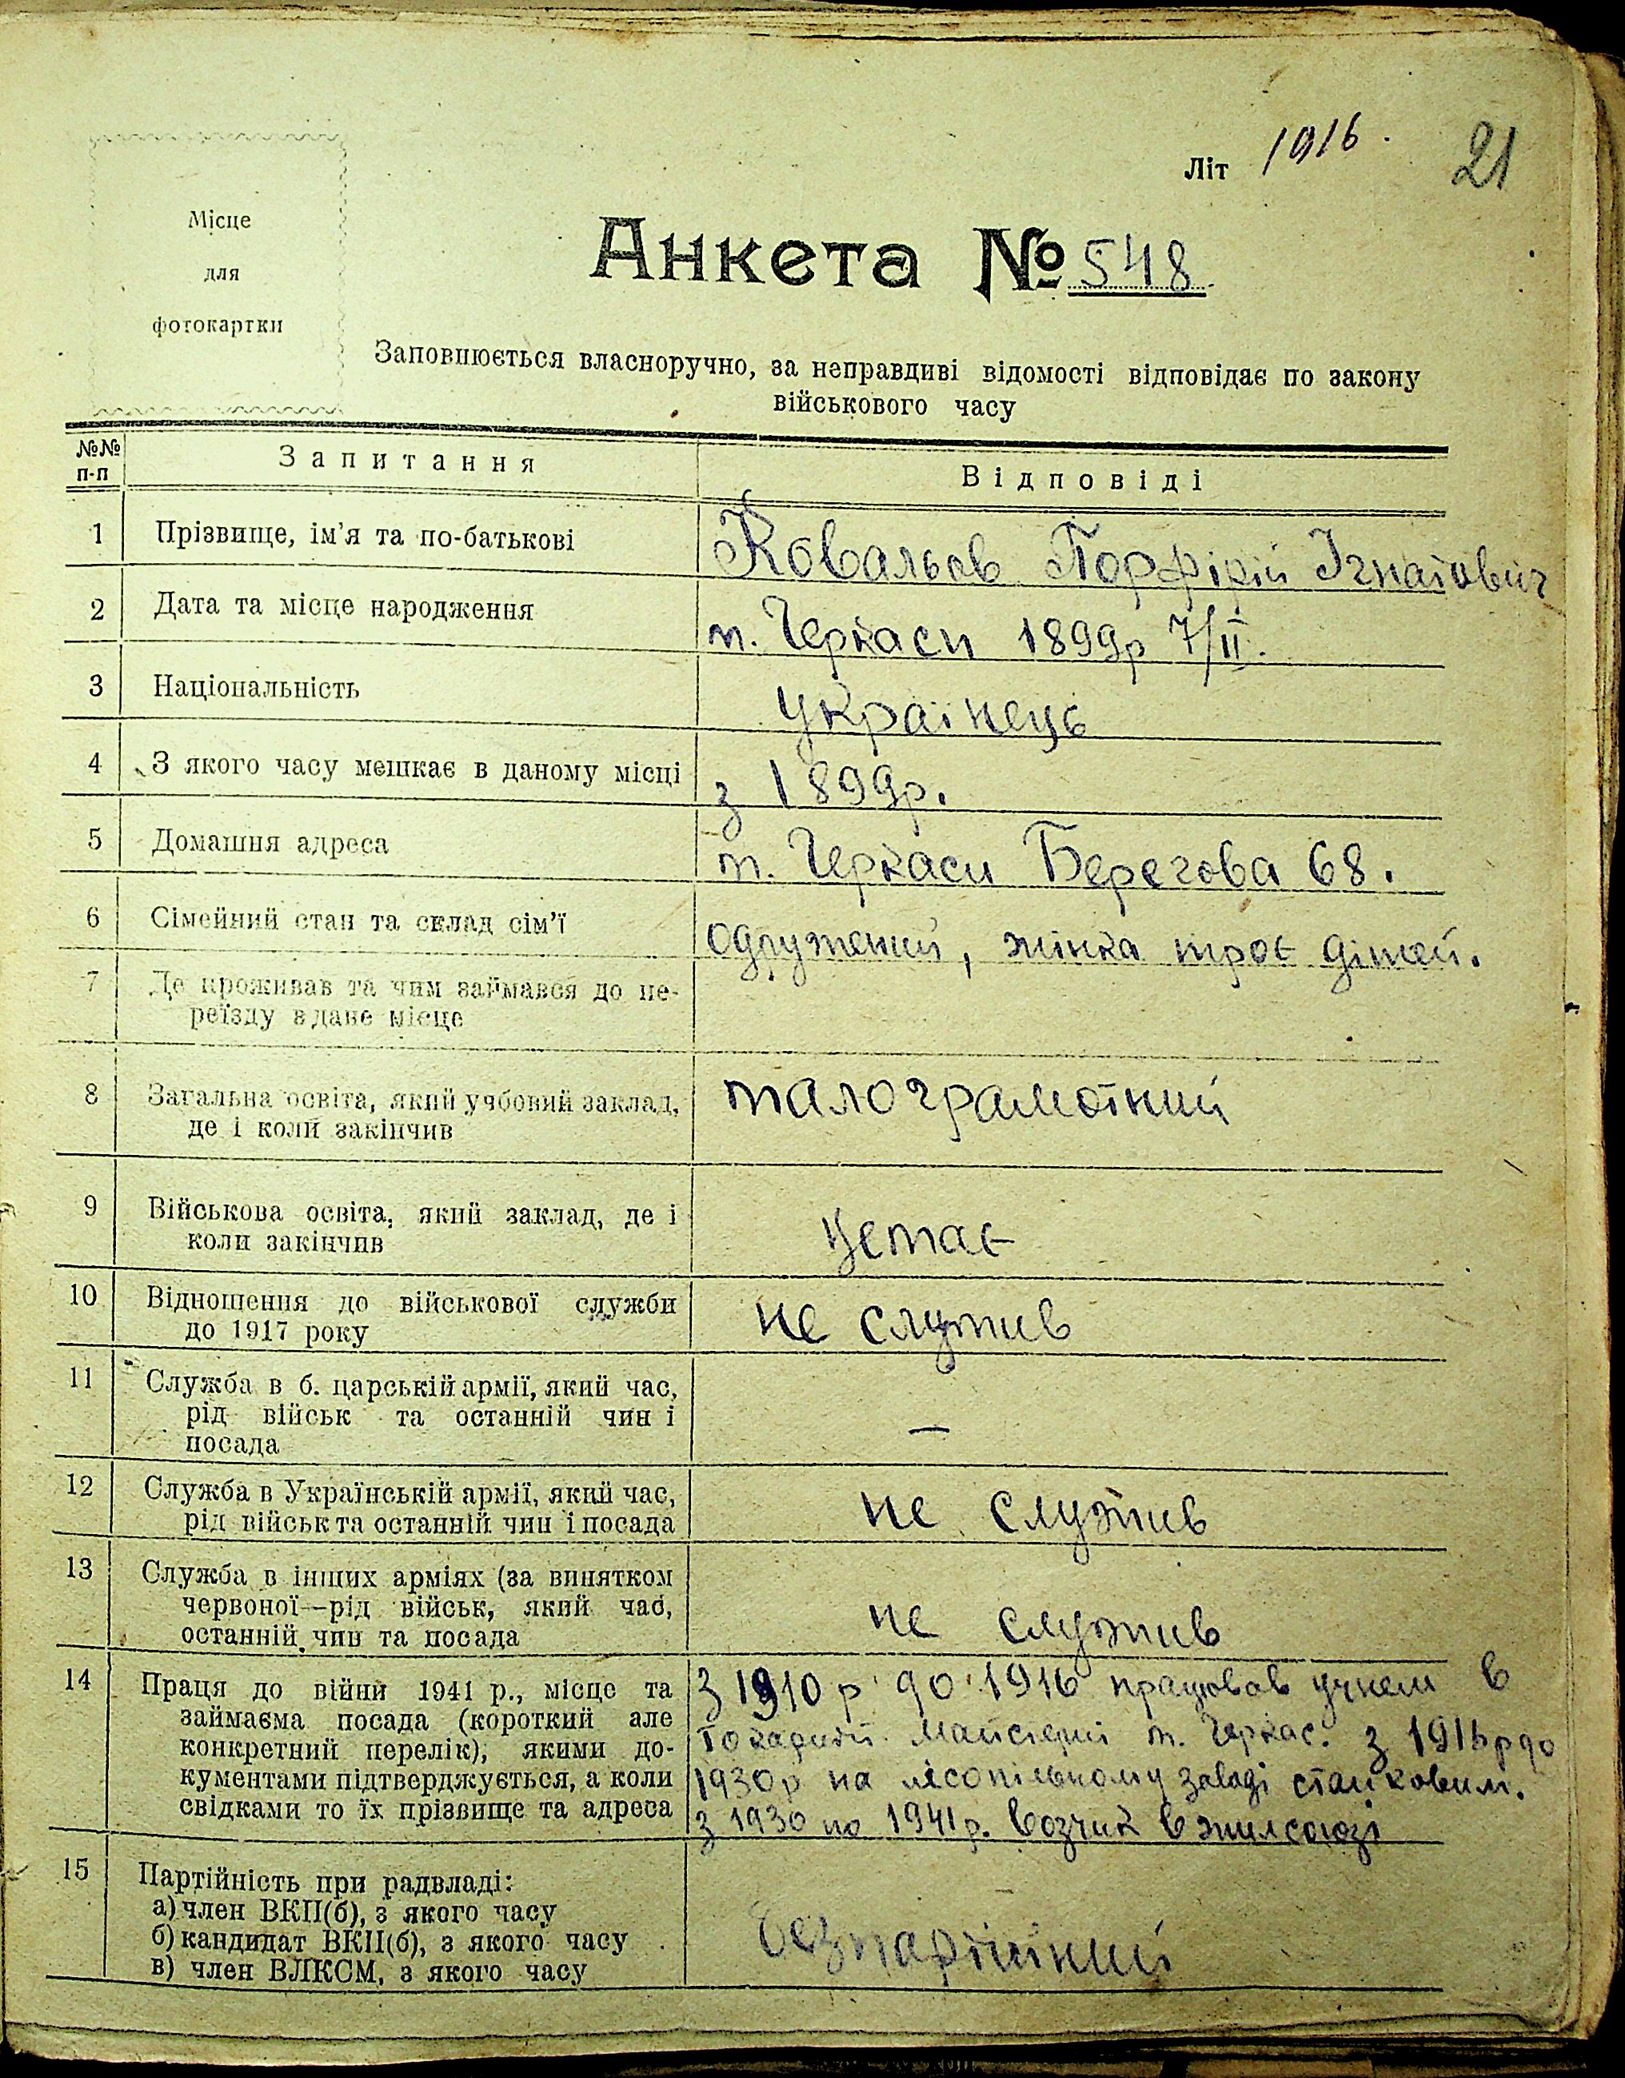 Літ 1916. 21
Місце
для
фотокартки
Анкета № 548
Заповнюється власноручно, за неправдиві відомості відповідає по закону
військового часу
№№ п-п Запитання Відповіді
1 Прізвище, ім'я та по-батькові Ковальов Порфірій Ігнатович
2 Дата та місце народження м. Черкаси 1899р 7/II.
3 Національність українець
4 З якого часу мешкає в даному місці з 1899р.
5 Домашня адреса м. Черкаси Берегова 68.
6 Сімейний стан та склад сім'ї одружений, жінка троє дітей.
7 Де проживав та чим займався до пе-
реїзду в дане місце
8 Загальна освіта, який учбовий заклад, малограмотний
де і коли закінчив
9 Військова освіта, який заклад, де і
коли закінчив немає
10 Відношення до військової служби
до 1917 року не служив
11 Служба в б. царській армії, який час,
рід військ та останній чин і —
посада
12 Служба в Українській армії, який час,
рід військ та останній чин і посада не служив
13 Служба в інших арміях (за винятком
червоної—рід військ, який час,
останній чин та посада не служив
14 Праця до війни 1941 р., місце та з 1910 р до 1916 працював учнем в
займаєма посада (короткий але токарній майстерні м. Черкас. з 1916р до
конкретний перелік), якими до-
кументами підтверджується, а коли 1930р на лісопільному заводі станковим.
свідками то їх прізвище та адреса з 1930 по 1941р. возчик в жилсоюзі
15 Партійність при радвладі:
а) член ВКП(б), з якого часу
б) кандидат ВКП(б), з якого часу безпартійний
в) член ВЛКСМ, з якого часу